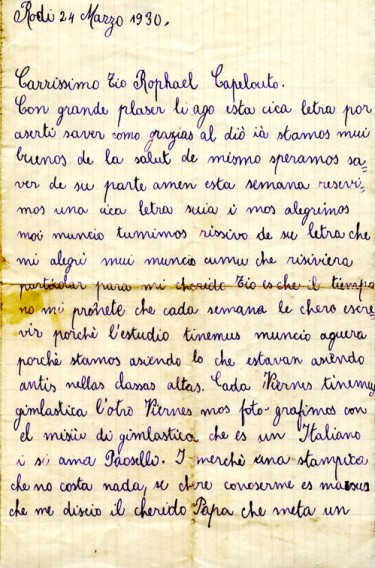 Rodi 24 Marzo 1930.
Carrissimo tio Rophael Capelouto.
Con grande plaser li ago esta cica letra por
aserti saver como grazias al diò ià stamos mui
buenos de la salut de mismo speramos sa=
ver de su parte amen esta semana resevi=
mos una cica letra suia i mos alegrimos
moi muncio tumimos rissivo de su letra che
mi alegri mui muncio cumu che risiviera
particolar para mi cherido tio es che il tiempo
no mi promete che cada semana le chero escre=
vir porchè l'estudio tinemus muncio aguera
porchè stamos asiendo lo che estavan asiendo
antis nellas classas altas. Cada Viernis tinemus
gimlastica l'otro Viernes mos foto-grafimos con
el misiù di gimlastica che es un Italiano
i si ama Paosello. I merchè una stampica
che no costa nada, se chere conoserme es
che me discio il cherido Papa che meta un